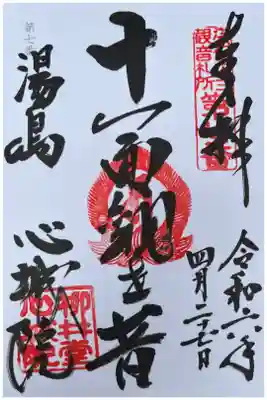 奉拝
観音札所
令和六年
四月二十七日
十一面観世音
第七番
湯島
心城院
柳井堂